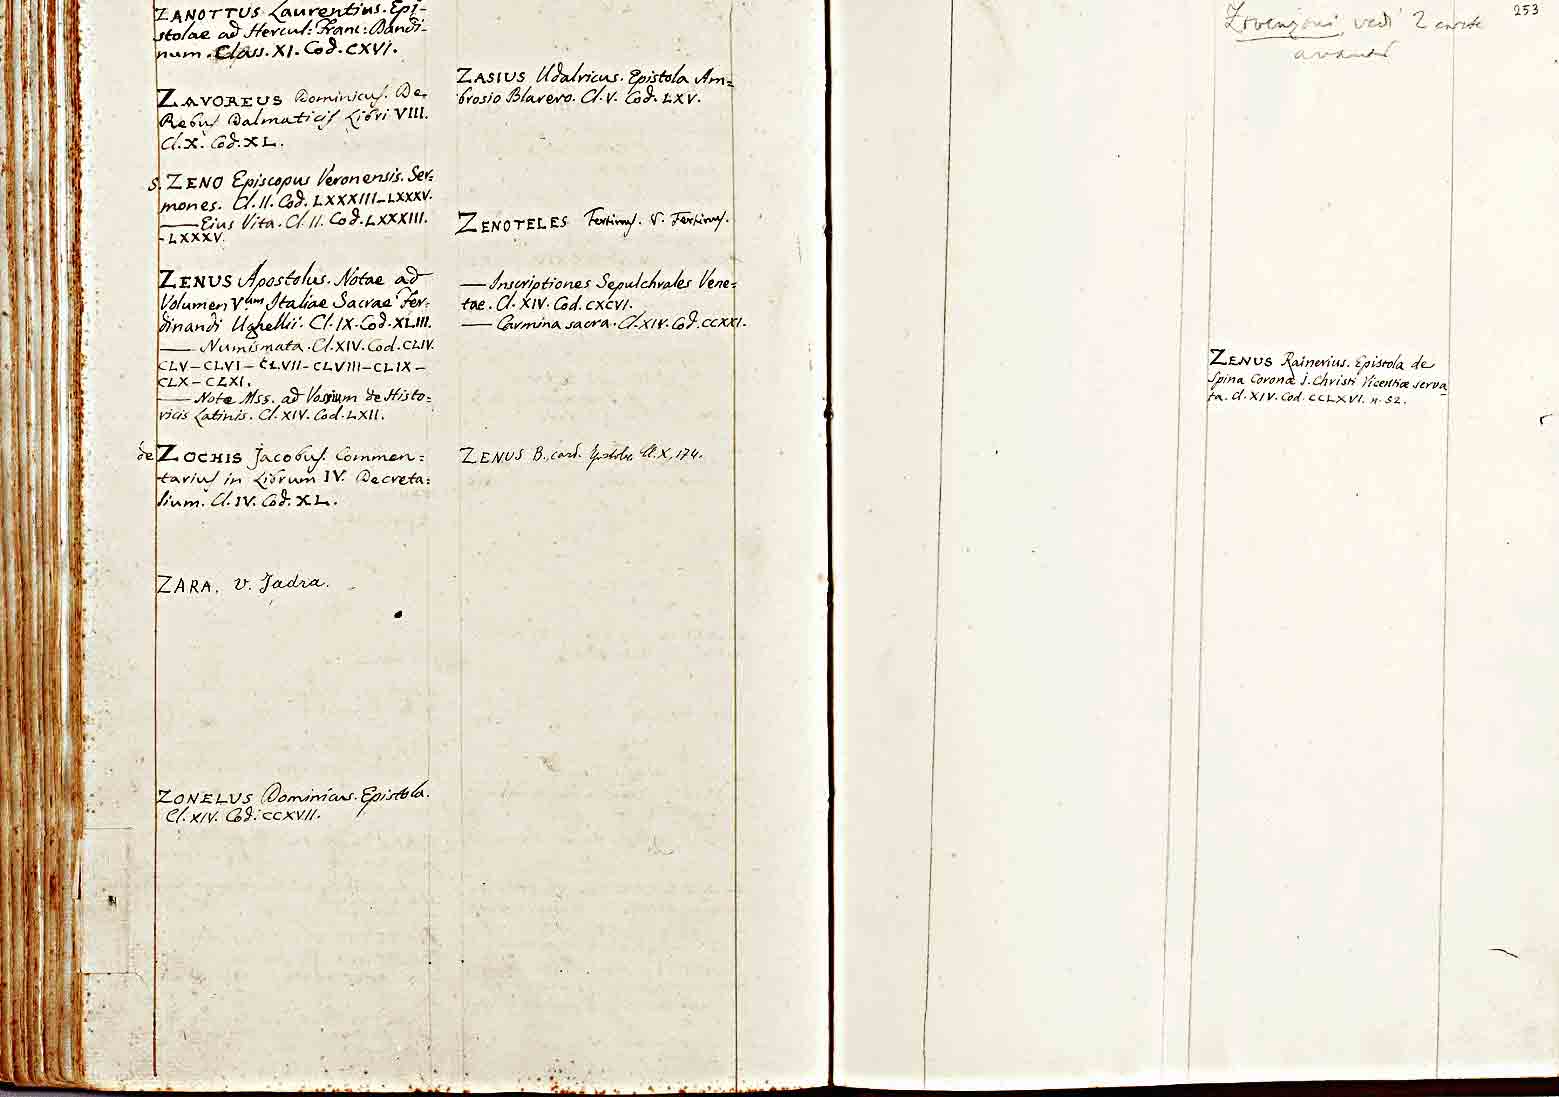 ZANOTTUS Laurentius. Epi-
stolae ad Hercul: Franc: Bandi-
num. Class. XI. Cod. CXVI.
ZAVOREUS Dominicus. De
Rebus Dalmaticis Libri VIII.
Cl. X. Cod. XL.
S. ZENO Episcopus Veronensis. Ser=
mones. Cl. II. Cod. LXXXIII-LXXXV.
— Eius Vita. Cl. II. Cod. LXXXIII.
-LXXXV.
ZENUS Apostolus. Notae ad
Volumen Vum Italiae Sacrae Fer-
dinandi Ughellii. Cl. IX. Cod. XLIII.
— Numismata. Cl. XIV. Cod. CLIV.
CLV-CLVI-CLVII-CLVIII-CLIX-
CLX-CLXI.
— Notæ Mss. ad Vossium de Histo=
ricis Latinis. Cl. XIV. Cod. LXII.
de ZOCHIS Jacobus. Commen=
tarius in Librum IV. Decreta=
lium. Cl. IV. Cod. XL.
ZARA. v. Jadra.
ZONELUS Dominicus. Epistola.
Cl. XIV. Cod. CCXVII.
ZASIUS Udalricus. Epistola Am=
brosio Blarero. Cl. V. Cod. LXV.
ZENOTELES Fertinus. V. Fertinus.
— Inscriptiones Sepulchrales Vene=
tae. Cl. XIV. Cod. CXCVI.
— Carmina sacra. Cl. XIV. Cod. CCXXI.
ZENUS B., card. Cl. X, 174.
253
Zovenzoni vedi 2 carte
avanti
ZENUS Rainerius. Epistola de
Spina Coronæ J. Christi Vicentiæ serva
ta. Cl. XIV. Cod. CCLXVI. n. 52.